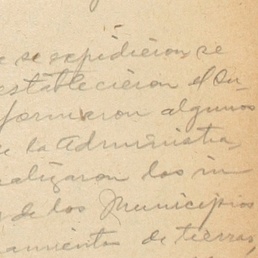 se expidieron, se
establecieron el Su-
formaron algunos
de la Administra
alizaron las in
de los Municipios
amientos de tierras,